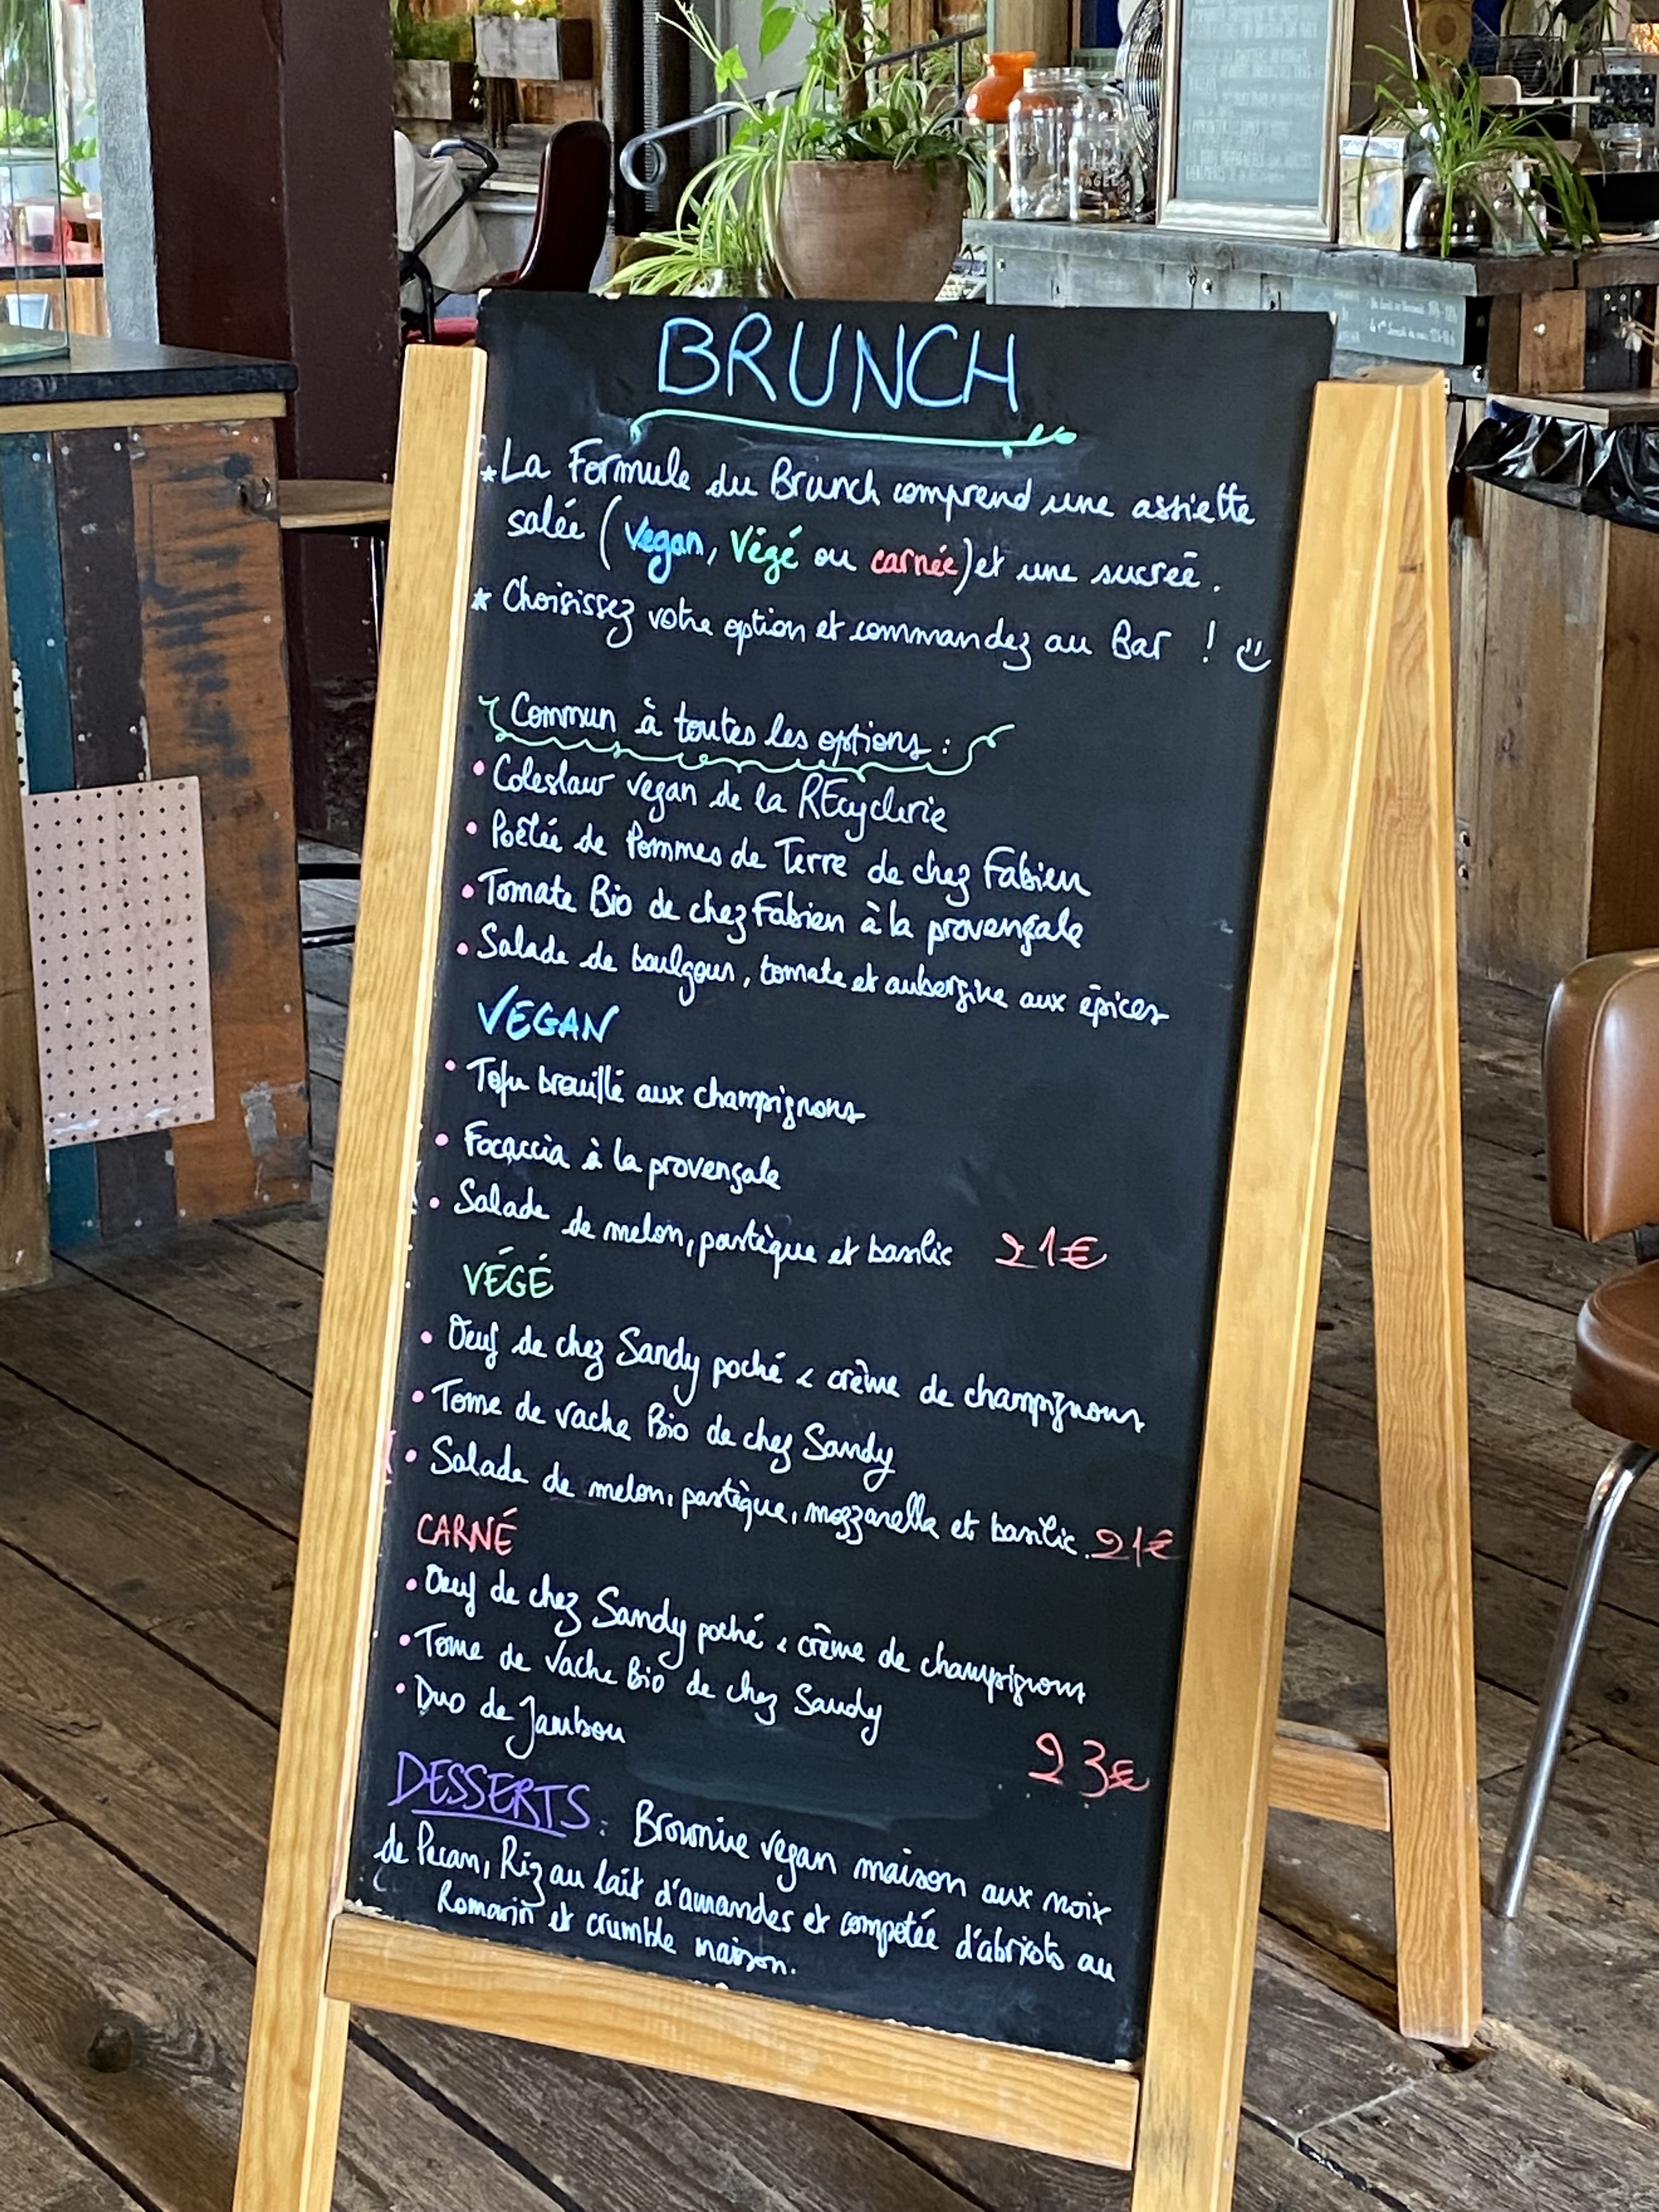 BRUNCH
* La Formule du Brunch comprend une assiette
salée (Vegan, Végé ou carnée) et une sucrée.
* Choisissez votre option et commandez au Bar !
Commun à toutes les options :
• Coleslaw vegan de la REcyclerie
• Poêlée de Pommes de Terre de chez Fabien
• Tomate Bio de chez Fabien à la provençale
• Salade de boulgour, tomate et aubergine aux épices
VEGAN
• Tofu brouillé aux champignons
• Focaccia à la provençale
• Salade de melon, pastèque et basilic 21€
VÉGÉ
• Oeuf de chez Sandy poché & crème de champignons
• Tome de vache Bio de chez Sandy
• Salade de melon, pastèque, mozzarella et basilic. 21€
CARNÉ
• Oeuf de chez Sandy poché & crème de champignons
• Tome de vache Bio de chez Sandy
• Duo de Jambon
23€
DESSERTS : Brownie vegan maison aux noix
de Pecan, Riz au lait d'amandes et compotée d'abricots au
Romarin et crumble maison.